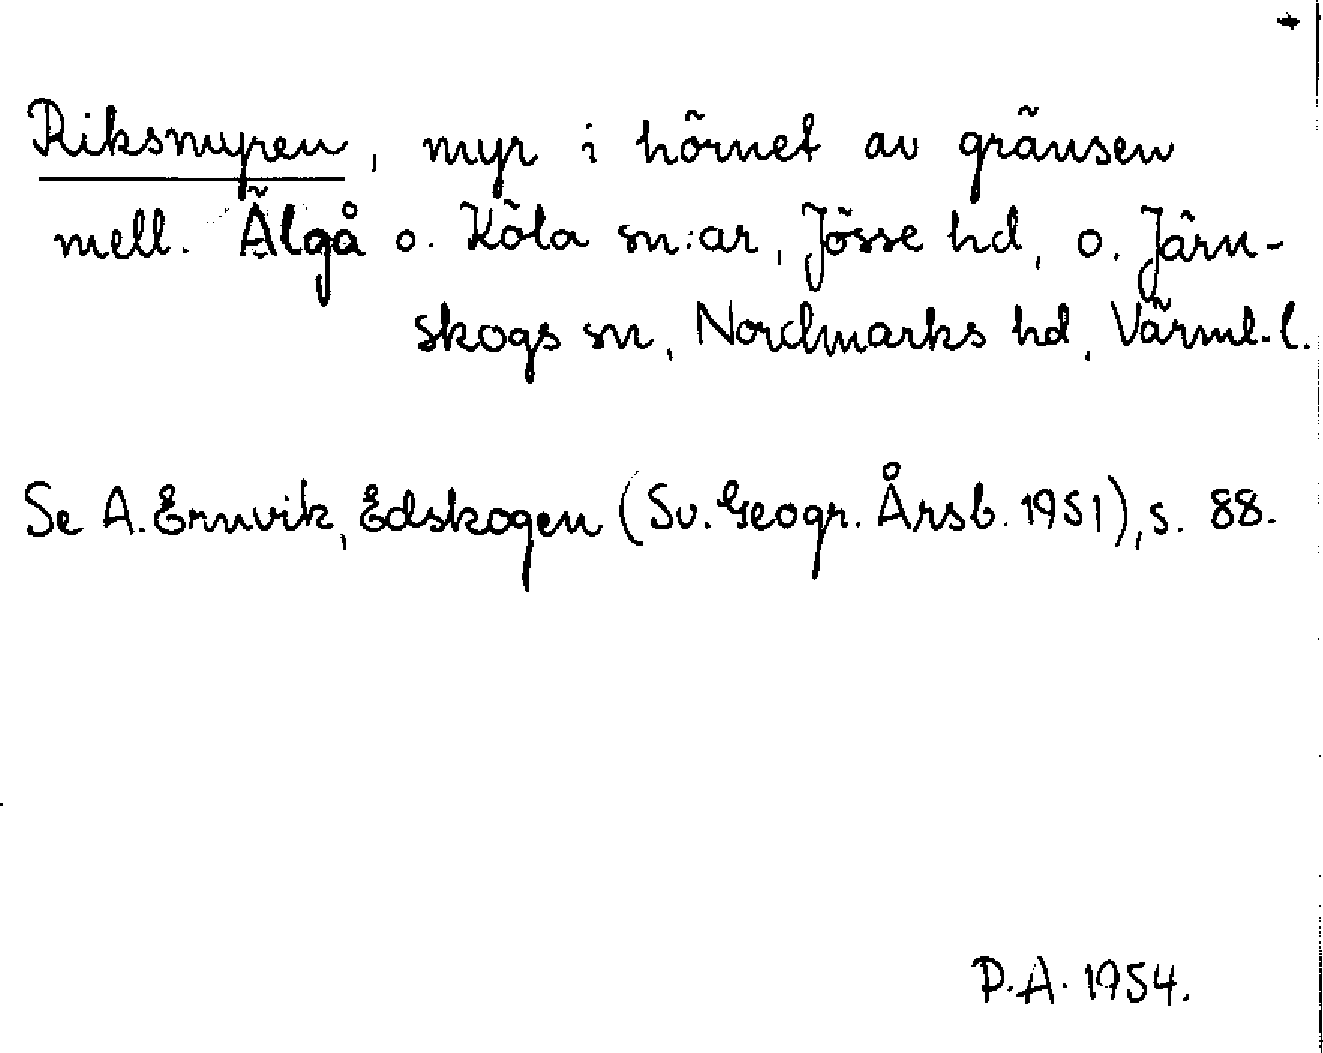 Riksmyren, myr i hörnet av gränsen
mell. Älgå o. Köla sn:ar, Jösse hd, o. Järn-
skogs sn, Nordmarks hd, Värml.l.
Se A. Ernvik, Edskogen (Sv. Geogr. Årsb. 1951), s. 88.
P.A. 1954.